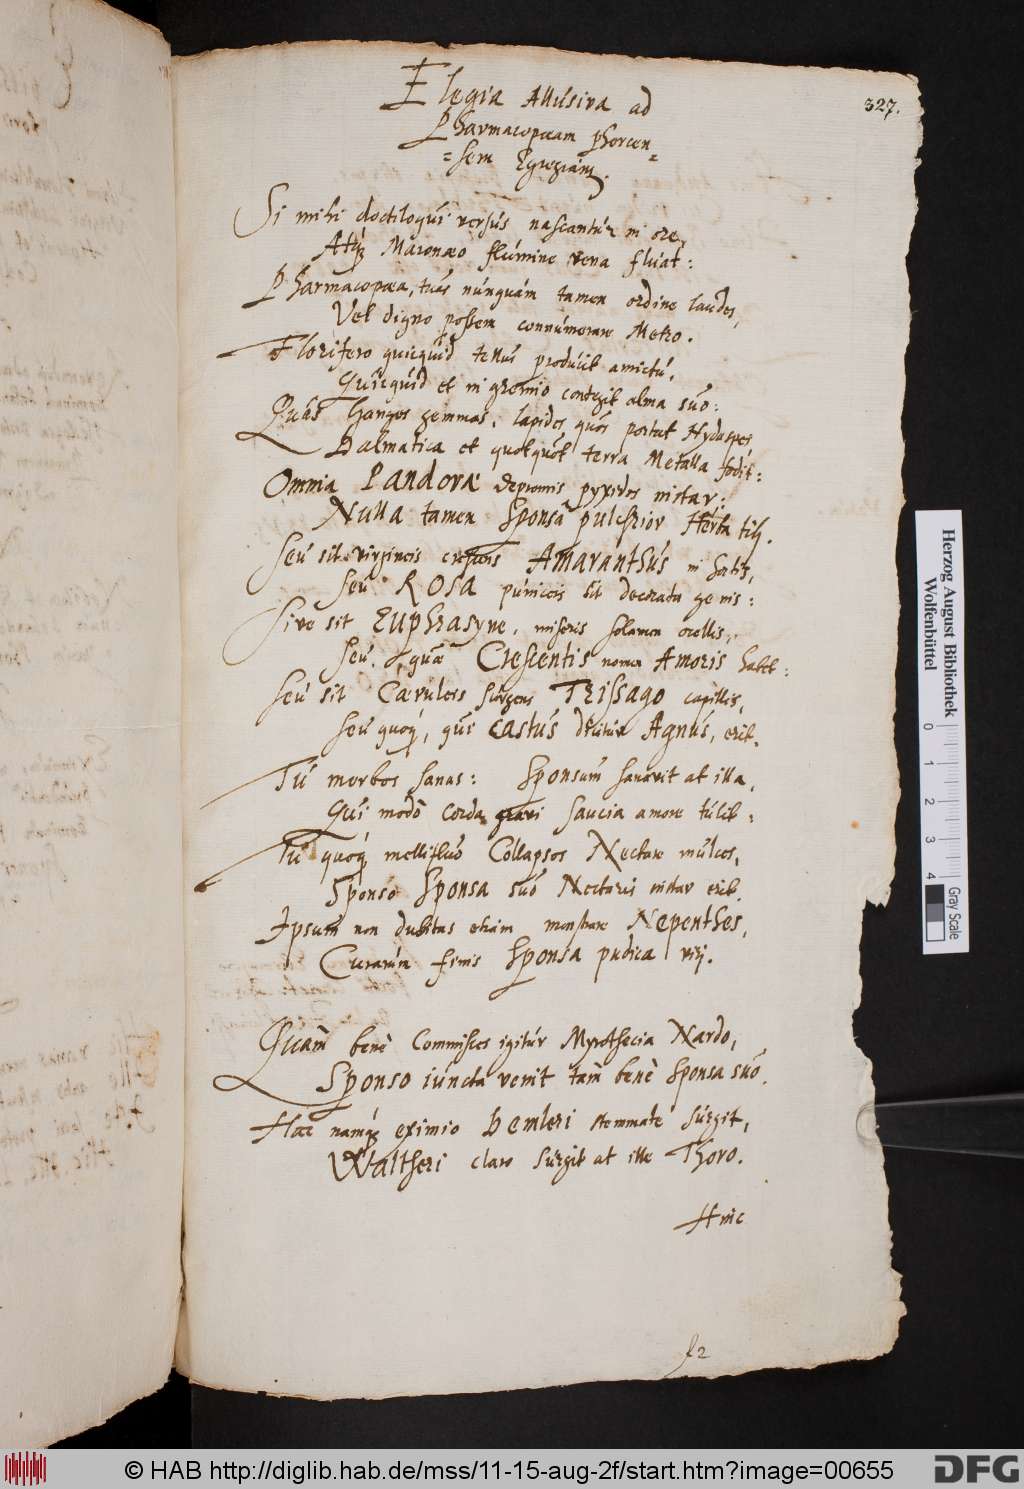 327.
Elegia Allusiva ad
Pharmacopœam phorcen=
=sem Egregiam.
Si mihi doctiloqui versus nascantur in ore,
Atq́ Maronæo flumine vena fluat:
Pharmacopœa, tuas nunquám tamen ordine laudes,
Vel digno possem connumerare Metro.
Florifero quicquid tellus producit amictu,
Quicquid et in gremio contegit alma suo:
Quas Ganges gemmas, lapides quos portat Hydaspes
Dalmatica et quotquot terra Metalla fodit:
Omnia Pandoræ depromis pyxidos instar:
Nulla tamen Sponsâ pulchrior Herba tibj.
Seu sit virgineis crescens Amaranthus in hortis,
Seu ROSA puniceis sit decorata genis:
Sive sit Euphrasyne, miseris solamen ocellis,
Seu, quæ Crescentis nomen Amoris habet:
Seu sit Cærulers surgens Trissago capillis,
Seu quoq́, qui castus dicitur Agnus, erit.
Tu morbos sanas: Sponsum sanavit at illa,
Qui modò corda gravi saucia amore tulit:
Tu quoq́ mellifluo Collapsos Nectare mulces,
Sponso Sponsa suo Nectaris instar erit.
Ipsum non dubitas etiam monstrare Nepenthes,
Curarum finis Sponsa pudica virj.
Quàm benè Commisces igitur Myrothecia Nardo,
Sponso iuncta venit tàm benè Sponsa suo.
Hæc namq́ eximio Hemleri stemmate surgit,
Waltheri claro surgit at ille Thoro.
Hinc
f2
Herzog August Bibliothek
Wolfenbüttel
0 1 2 3 4
Gray Scale
© HAB http://diglib.hab.de/mss/11-15-aug-2f/start.htm?image=00655
DFG